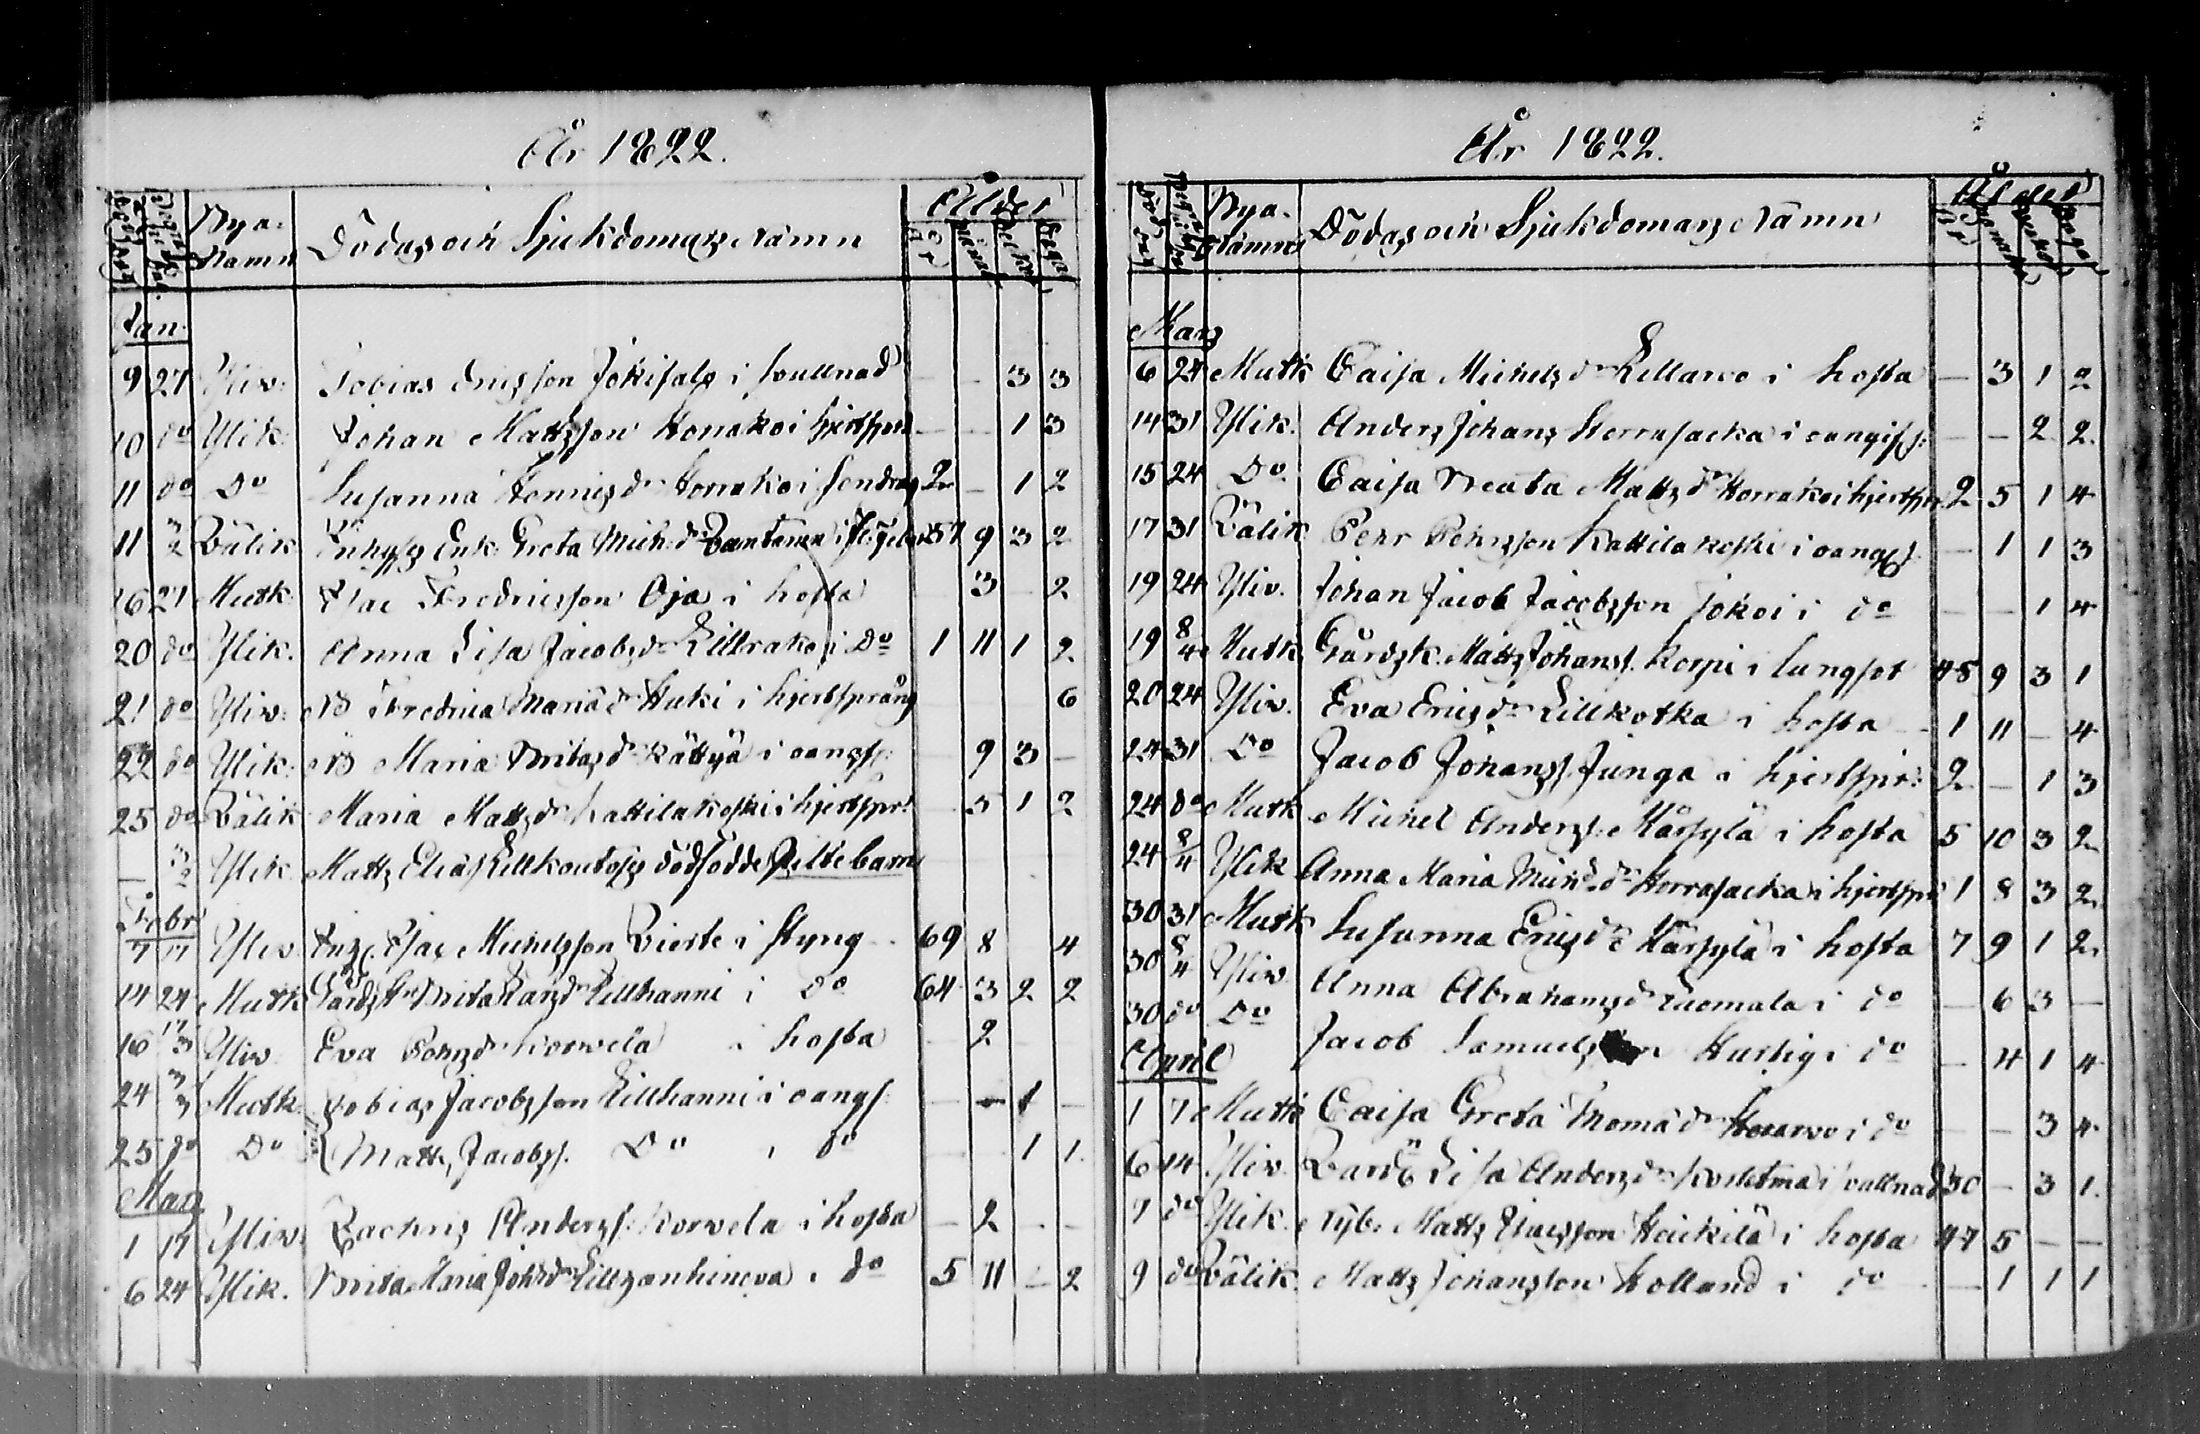 År 1822.
Bya-Namn Dödas och Sjukdomarz Namn Ålder
Jan:
9 27 Yliv: Tobias Ericsson Jokisalo i svullnad — — 3 3
10 do Ylik: Johan Mattsson Korrako i hjertspr: — — 1 3
11 do Do Susanna Hennricsdr Korrako i 2 — 1 2
11 3/2 Wälik: Enk. Greta Mich:dr i 57 9 3 2
16 27 Mutk: Isac Fredricsson Oja i hosta 3 — 2
20 do Ylik. Anna Lisa Jacobsdr Lillrako i Do 1 11 1 2
21 do Yliv: NB Fredrica Mariädr Huki i hjertsprång 6
22 do Ylik: NB Maria Britasdr Kättyä i oangif: — 9 3 —
25 do Wälik Maria Mattsdr Kattilakoski i hjertspr: — 5 1 2
— 3/2 Ylik Matts Eliæ dödfödde Piltebarn
Febr
7 17 Yliv Isac Michelsson Vierte i Styng 69 8 4
14 24 Mutk Brita Larsdr Lillhanni i Do 64 3 2 2
16 17/3 Yliv Eva Pehrsdr Korvela i hosta — 2
24 3/3 Mutk: Tobias Jacobsson Lillhanni i oangf: — — 1 —
25 do Do Matts Jacobss. Do i do 1 1
Mars
1 17 Yliv: Zachris Anderss: Korvela i hosta — 2 — —
6 24 Ylik. Brita Maria Johsdr i do 5 11 — 2
År 1822.
Bya-Namn Dödas och Sjukdomarz Namn Ålder
Mars
6 24 Mutk Caisa Michelsdr Kellarvo i hosta — 3 1 2
14 31 Ylik. Anders Johans Herrasacka i oangif: — — 2 2
15 24 Do Caisa Beata Mattsdr Korrako i hjertspr 2 5 1 4
17 31 Wälik Pehr Pehrsson Kattilakoski i oangf: — 1 1 3
19 24 Yliv. Johan Jacob Jacobsson Jokoi i do — — 1 4
19 8/4 Mutk Gårdsk. Matts Johanss. Korpi i lungsot 48 9 3 1
20 24 Yliv. Eva Ericsdr Lillkotka i hosta — 1 11 — 4
24 31 Do Jacob Johanss. Junga i hjertspr: 2 — 1 3
24 do Mutk Michel Anderss: Märsylä i hosta 5 10 3 2
24 8/4 Ylik Anna Maria Mich:dr Herrasacka i hjertspr 1 8 3 2
30 31 Mutk Susanna Ericsdr Märsylä i hosta 7 9 1 2
30 8/4 Yliv Anna Abrahamsdr Tuomala i do — 6 3 —
30 do Do Jacob Samuelsson Hurtig i do — 4 1 4
April
1 7 Mutk Caisa Greta Thomædr i do — — 3 4
6 14 Yliv. Lisa Andersdr i vallnad 30 — 3 1
7 do Ylik. Nyb. Matts Isacsson Heickilä i hosta 47 5 — —
9 do Wälik. Matts Johansson Holland i do — 1 1 1